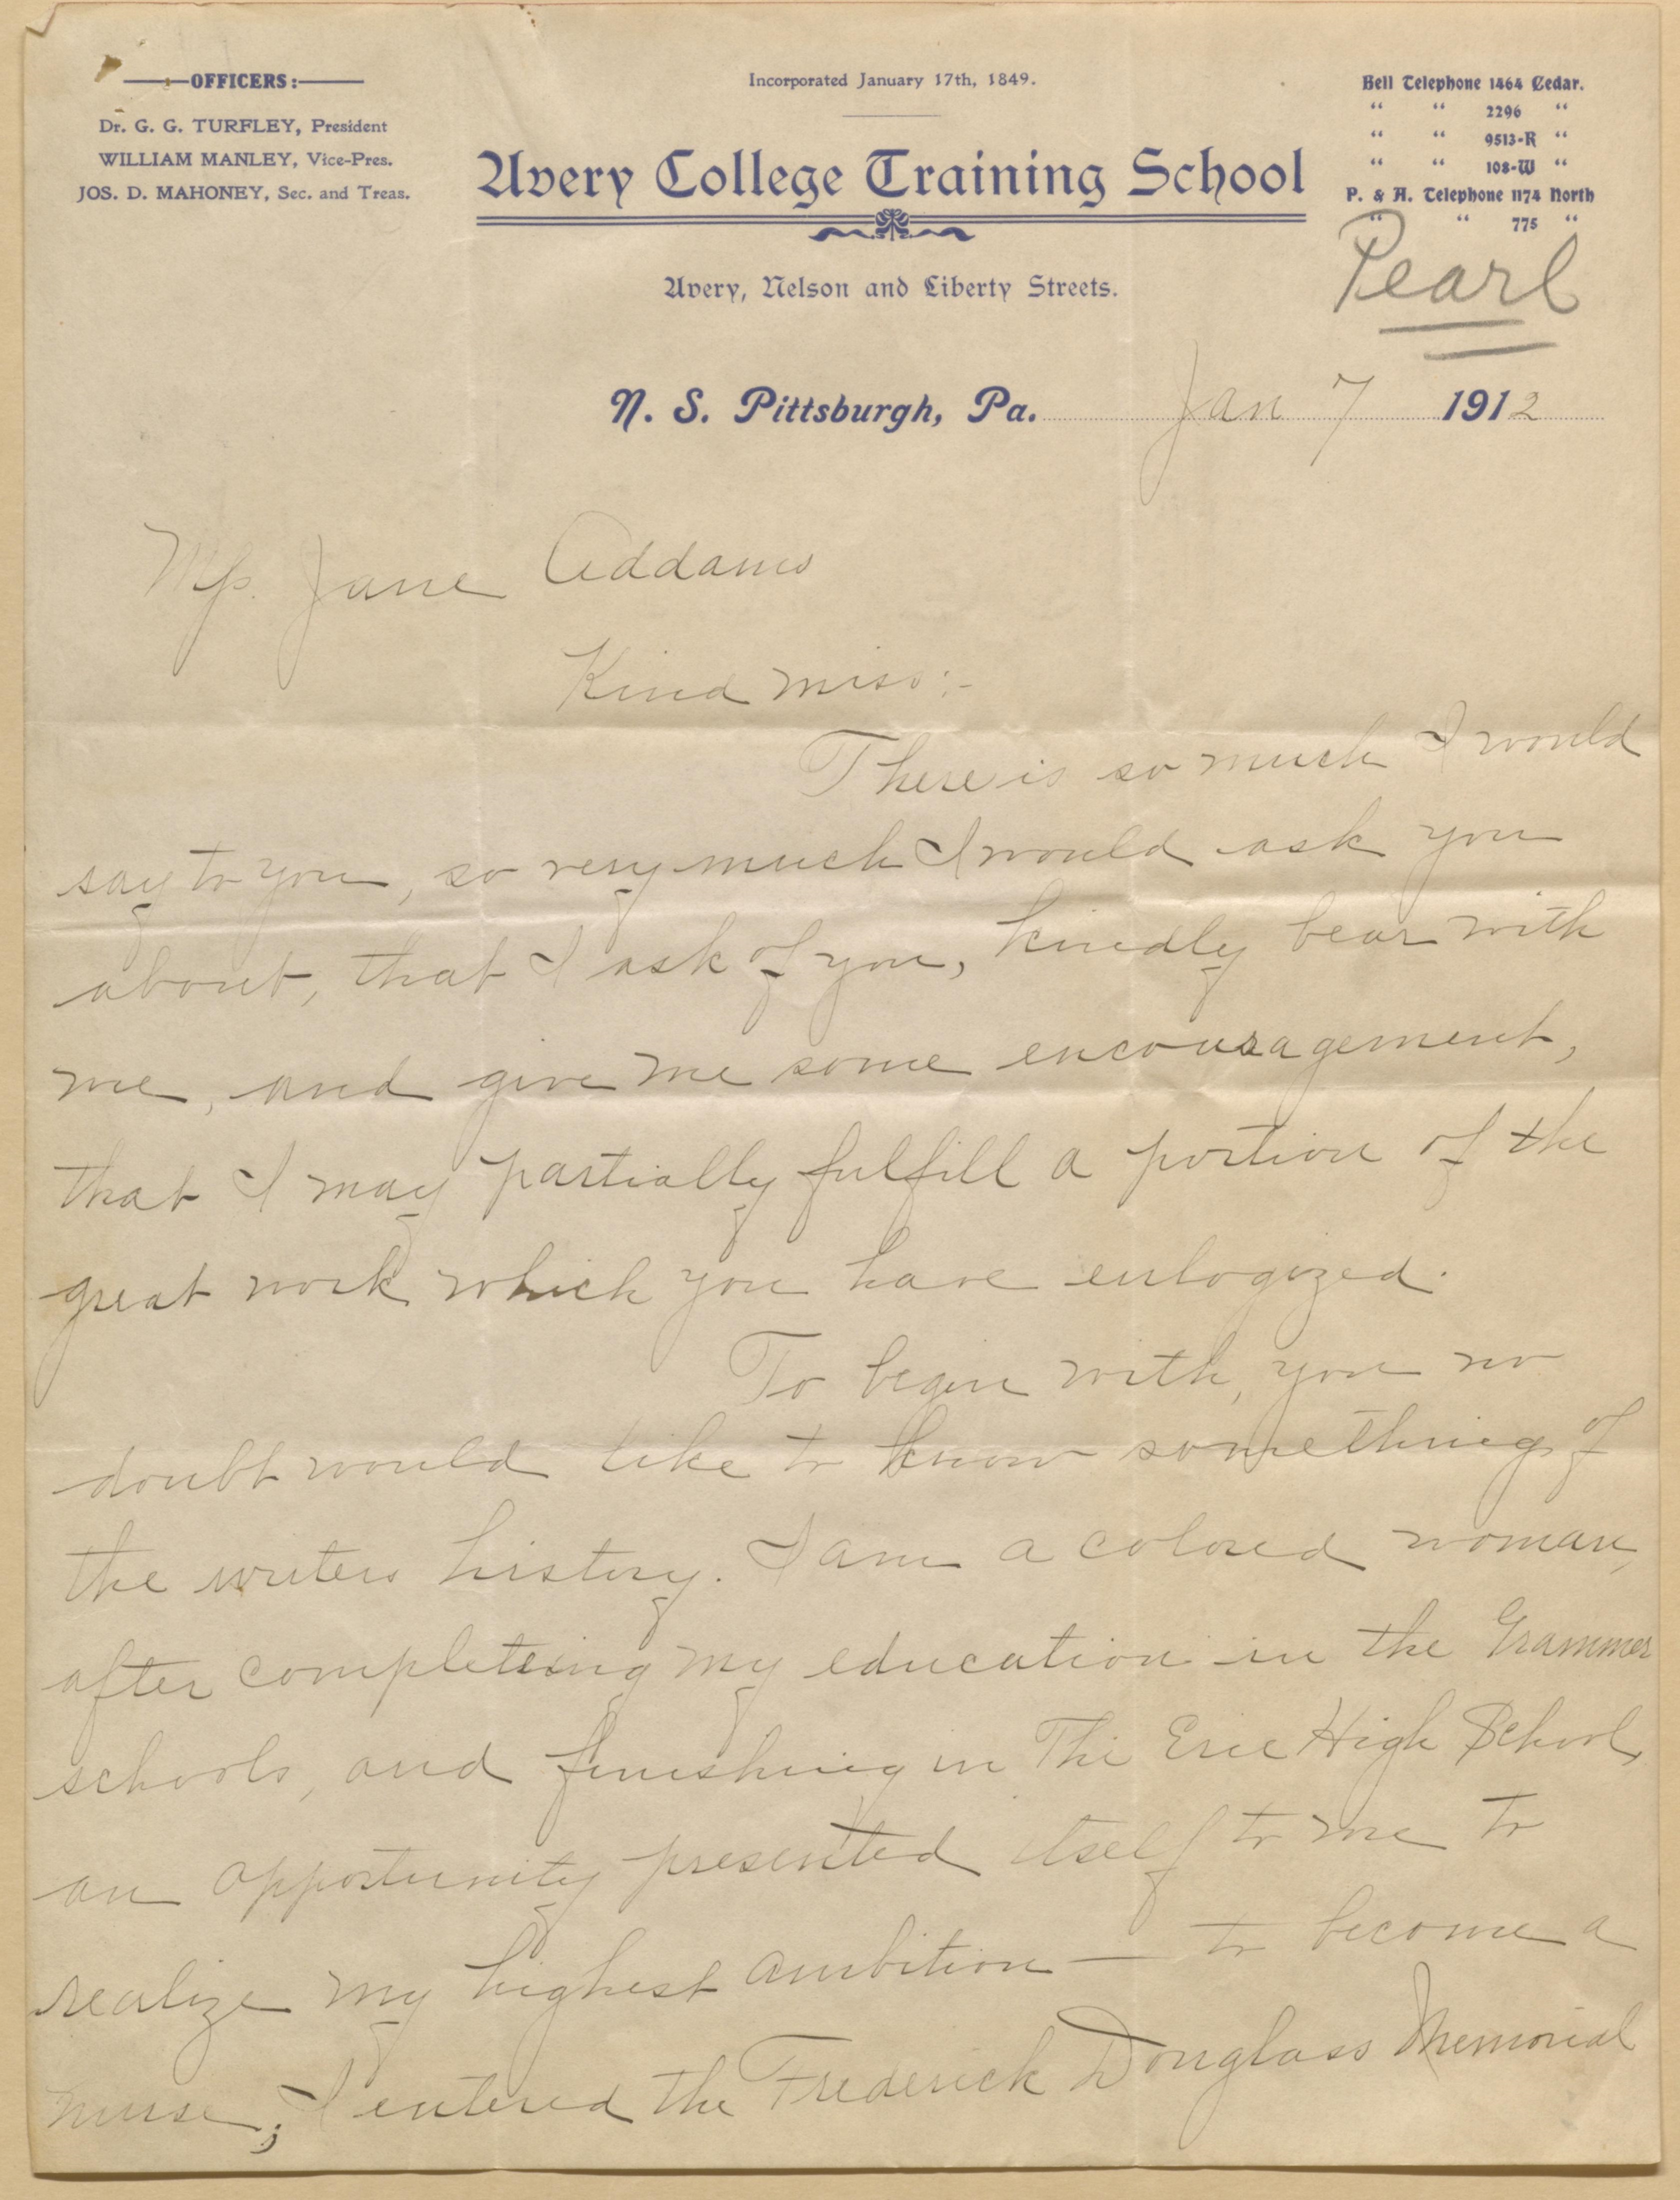 OFFICERS:
Dr. G. G. TURFLEY, President
WILLIAM MANLEY, Vice-Pres.
JOS. D. MAHONEY, Sec. and Treas.
Incorporated January 17th, 1849.
Avery College Training School
Avery, Nelson and Liberty Streets.
Bell Telephone 1464 Cedar.
“ “ 2296 “
“ “ 9513-R “
“ “ 108-W “
P. & A. Telephone 1174 North
“ “ 775 “
Pearl
N. S. Pittsburgh, Pa. Jan 7 1912
Jane Addams
Kind miss:-
There is so much I would
say to you, so very much I would ask you
about, that I ask of you, kindly bear with
me, and give me some encouragement,
that I may partially fulfill a portion of the
great work which you have eulogized.
To begin with, you no
doubt would like to know something of
the writers history. I am a colored woman,
after completeing my education in the Grammer
schools, and finishing in The Erie High School,
an opportunity presented itself to me to
realize my highest ambition — to become a
nurse; I entered the Frederick Douglass Memorial